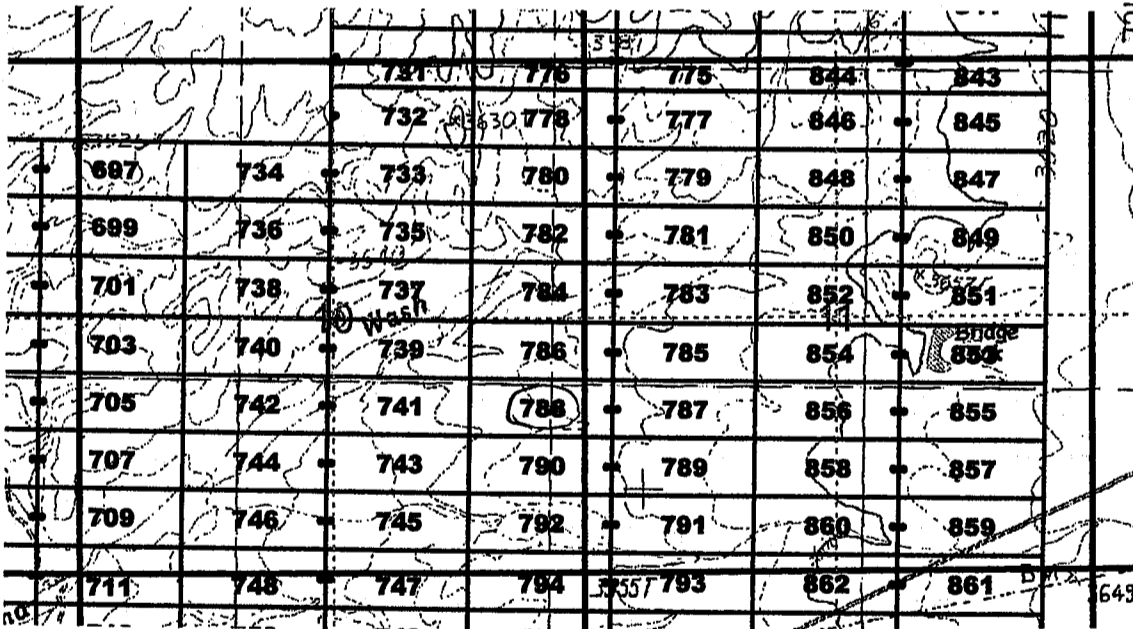 731 776 775 844 843
732 3630 778 777 846 845
697 734 733 780 779 848 847
3520
699 736 735 782 781 850 849
701 738 737 784 783 852 851
Wash
11
Bridge
703 740 739 786 785 854 853
705 742 741 788 787 856 855
707 744 743 790 789 858 857
709 746 745 792 791 860 859
711 748 747 794 793 862 861